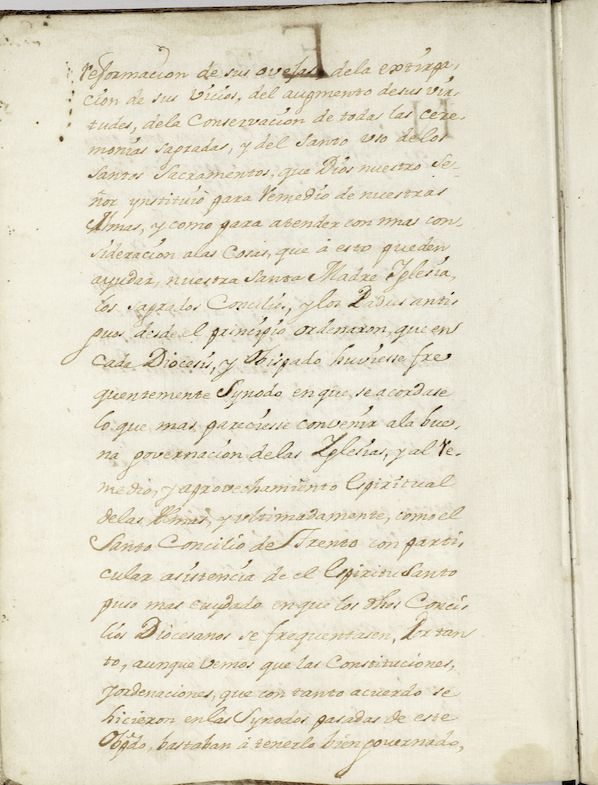 reformacion de sus ovejas, dela extirpa,
cion de sus Vicios, del augmento desus vir,
tudes, dela Conservacion de todas las cere,
monias sagradas, y del Santo uso delos
Santos Sacramentos, que Dios nuestro Se,
ñor ynstituió para Remedio de nuestras
Almas, y como para atender con mas con,
sideracion alas Cosas, que à esto pueden
ayudar, nuestra Santa Madre Yglesia,
los Sagrados Concilios, y los Padres anti,
guos desde el principio ordenaron, que en
cada Diocesis, y Obispado huviesse fre
quentemente Synodo en que se acordase
lo que mas pareciesse convenir ala bue,
na governacion delas Yglesias, y al Re,
medio, y aprovechamiento Espiritual
delas Almas, y ultimadamente, como el
Santo Concilio de Trento con parti,
cular asistencia de el Espiritu Santo
puso mas cuydado en que los dhos Conci,
lios Diocesanos se frequentasen, Por tan
to, aunque vemos que las Constituciones,
y ordenaciones, que con tanto acuerdo se
hicieron en las Synodos pasadas de este
Obp̃do, bastaban à tenerlo bien governado,